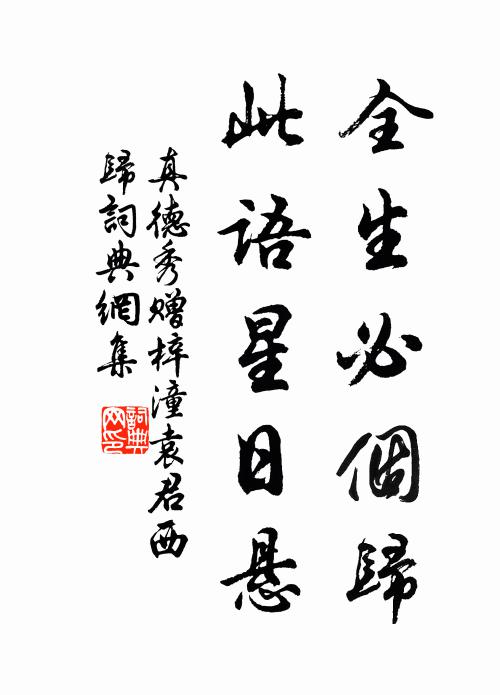 全生必個歸
此語星日懸
真德秀贈梓潼袁君西
歸詞典網集
詞典
网印